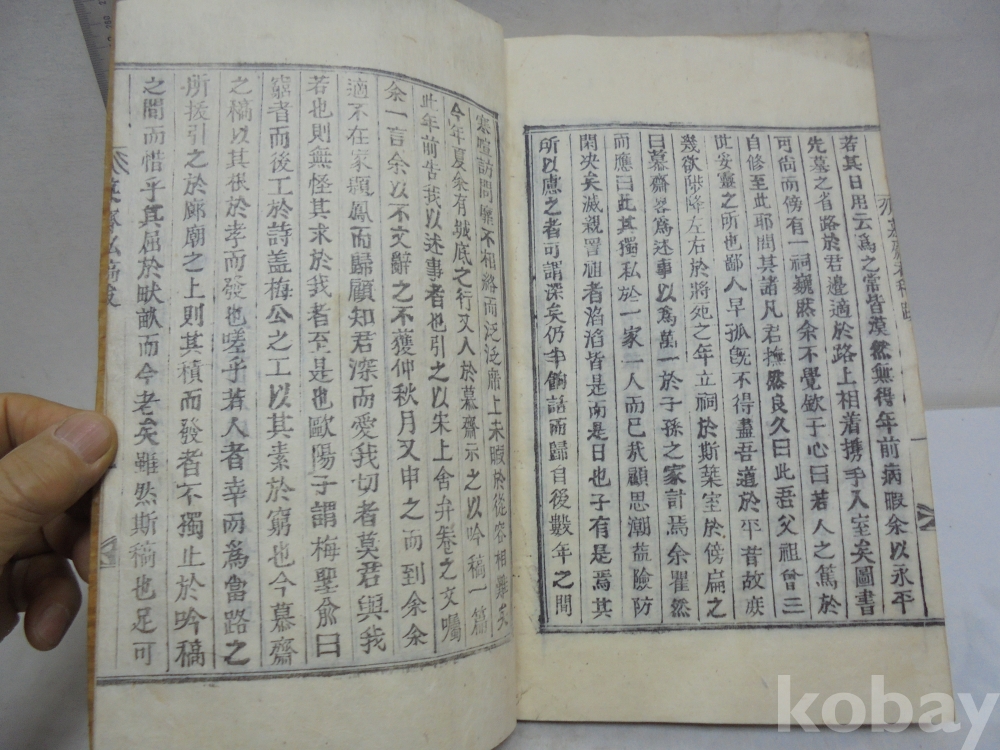 若其日用云爲之常皆漠然無得年前病暇余以永平
先墓之省路於君邊適於路上相着携手入室矣圖書
可尙而傍有一祠巍然余不覺欽于心曰若人之篤於
自修至此耶問其諸凡君撫然良久曰此吾父祖曾三
世安靈之所也鄙人早孤旣不得盡吾道於平昔故庶
幾欲陟降左右於將死之年立祠於斯葉室於傍扁之
曰慕齋畧爲述事以爲萬一於子孫之家計焉余瞿然
而應曰此其獨私於一家一人而已哉顧思潮益險防
閑決矣滅親置 者滔滔皆是而是日也子有是焉其
所以應之者可謂深矣仍牛餉話而歸自後數年之間
寒喧訪問靡不相絡而泛泛 上未暇於從容相 矣
今年夏余有城底之行又入於慕齋示之以吟稿一篇
此年前告我以述事者也引之以宋上舍弁卷之文囑
余一言余以不文辭之不獲仲秋月又申之而到余余
適不在家題鳳而歸顧知君深而愛我切者莫君與我
若也則無怪其求於我者至是也歐陽子謂梅聖兪曰
窮者而後工於詩盖梅公之工以其素於窮也今慕齋
之稿以其根於孝而發也嗟乎若人者幸而爲當路之
所援引之於廊廟之上則其積而發者不獨止於吟稿
之間而惜乎其屈於畎畝而今老矣雖然斯稿也足可
kobay